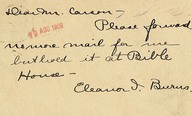 Dear Mr. Carson -
Please forward
no more mail for me
but hold it at Bible
House -
Eleanor I. Burns.
AUG 1908